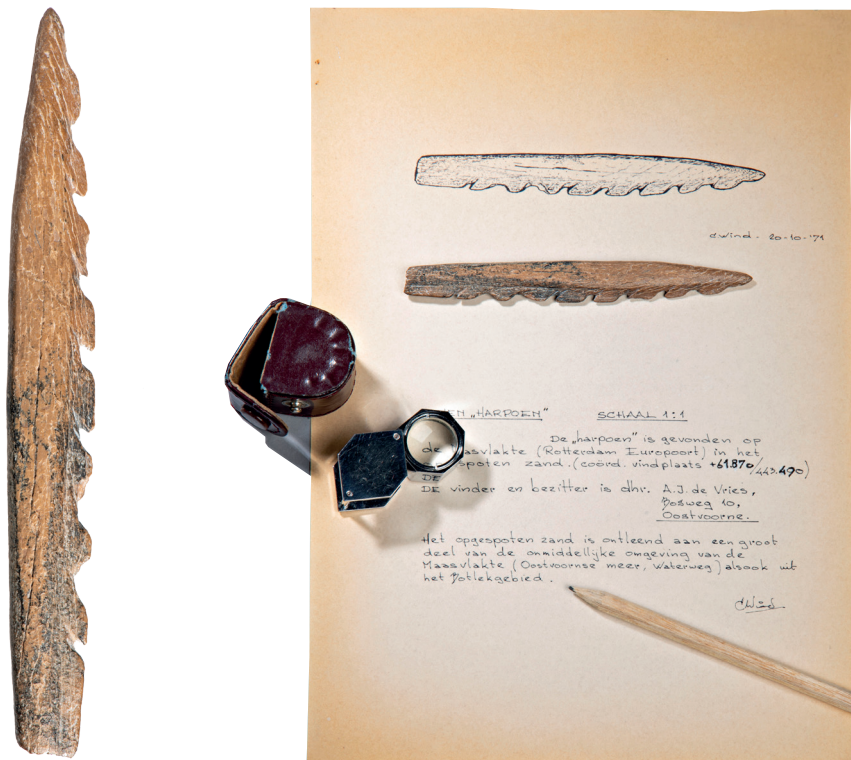 d.wind - 20-10-'71
EN „HARPOEN" SCHAAL 1:1
De „harpoen" is gevonden op
de aasvlakte (Rotterdam Europoort) in het
spoten zand. (coörd. vindplaats +61.870/443.490)
DE
DE vinder en bezitter is dhr. A.J. de Vries,
Bosweg 10,
Oostvoorne.
Het opgespoten zand is ontleend aan een groot
deel van de onmiddellijke omgeving van de
Maasvlakte (Oostvoornse meer, Waterweg) alsook uit
het Botlekgebied.